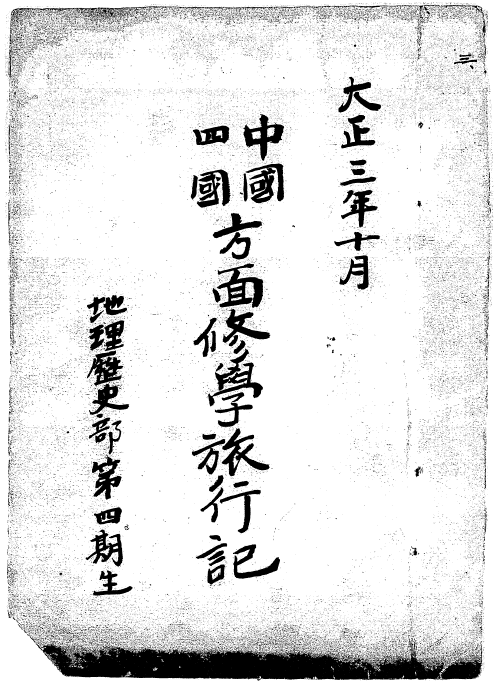 三、
大正三年十月
中國
四國
方面修學旅行記
地理歷史部第四期生